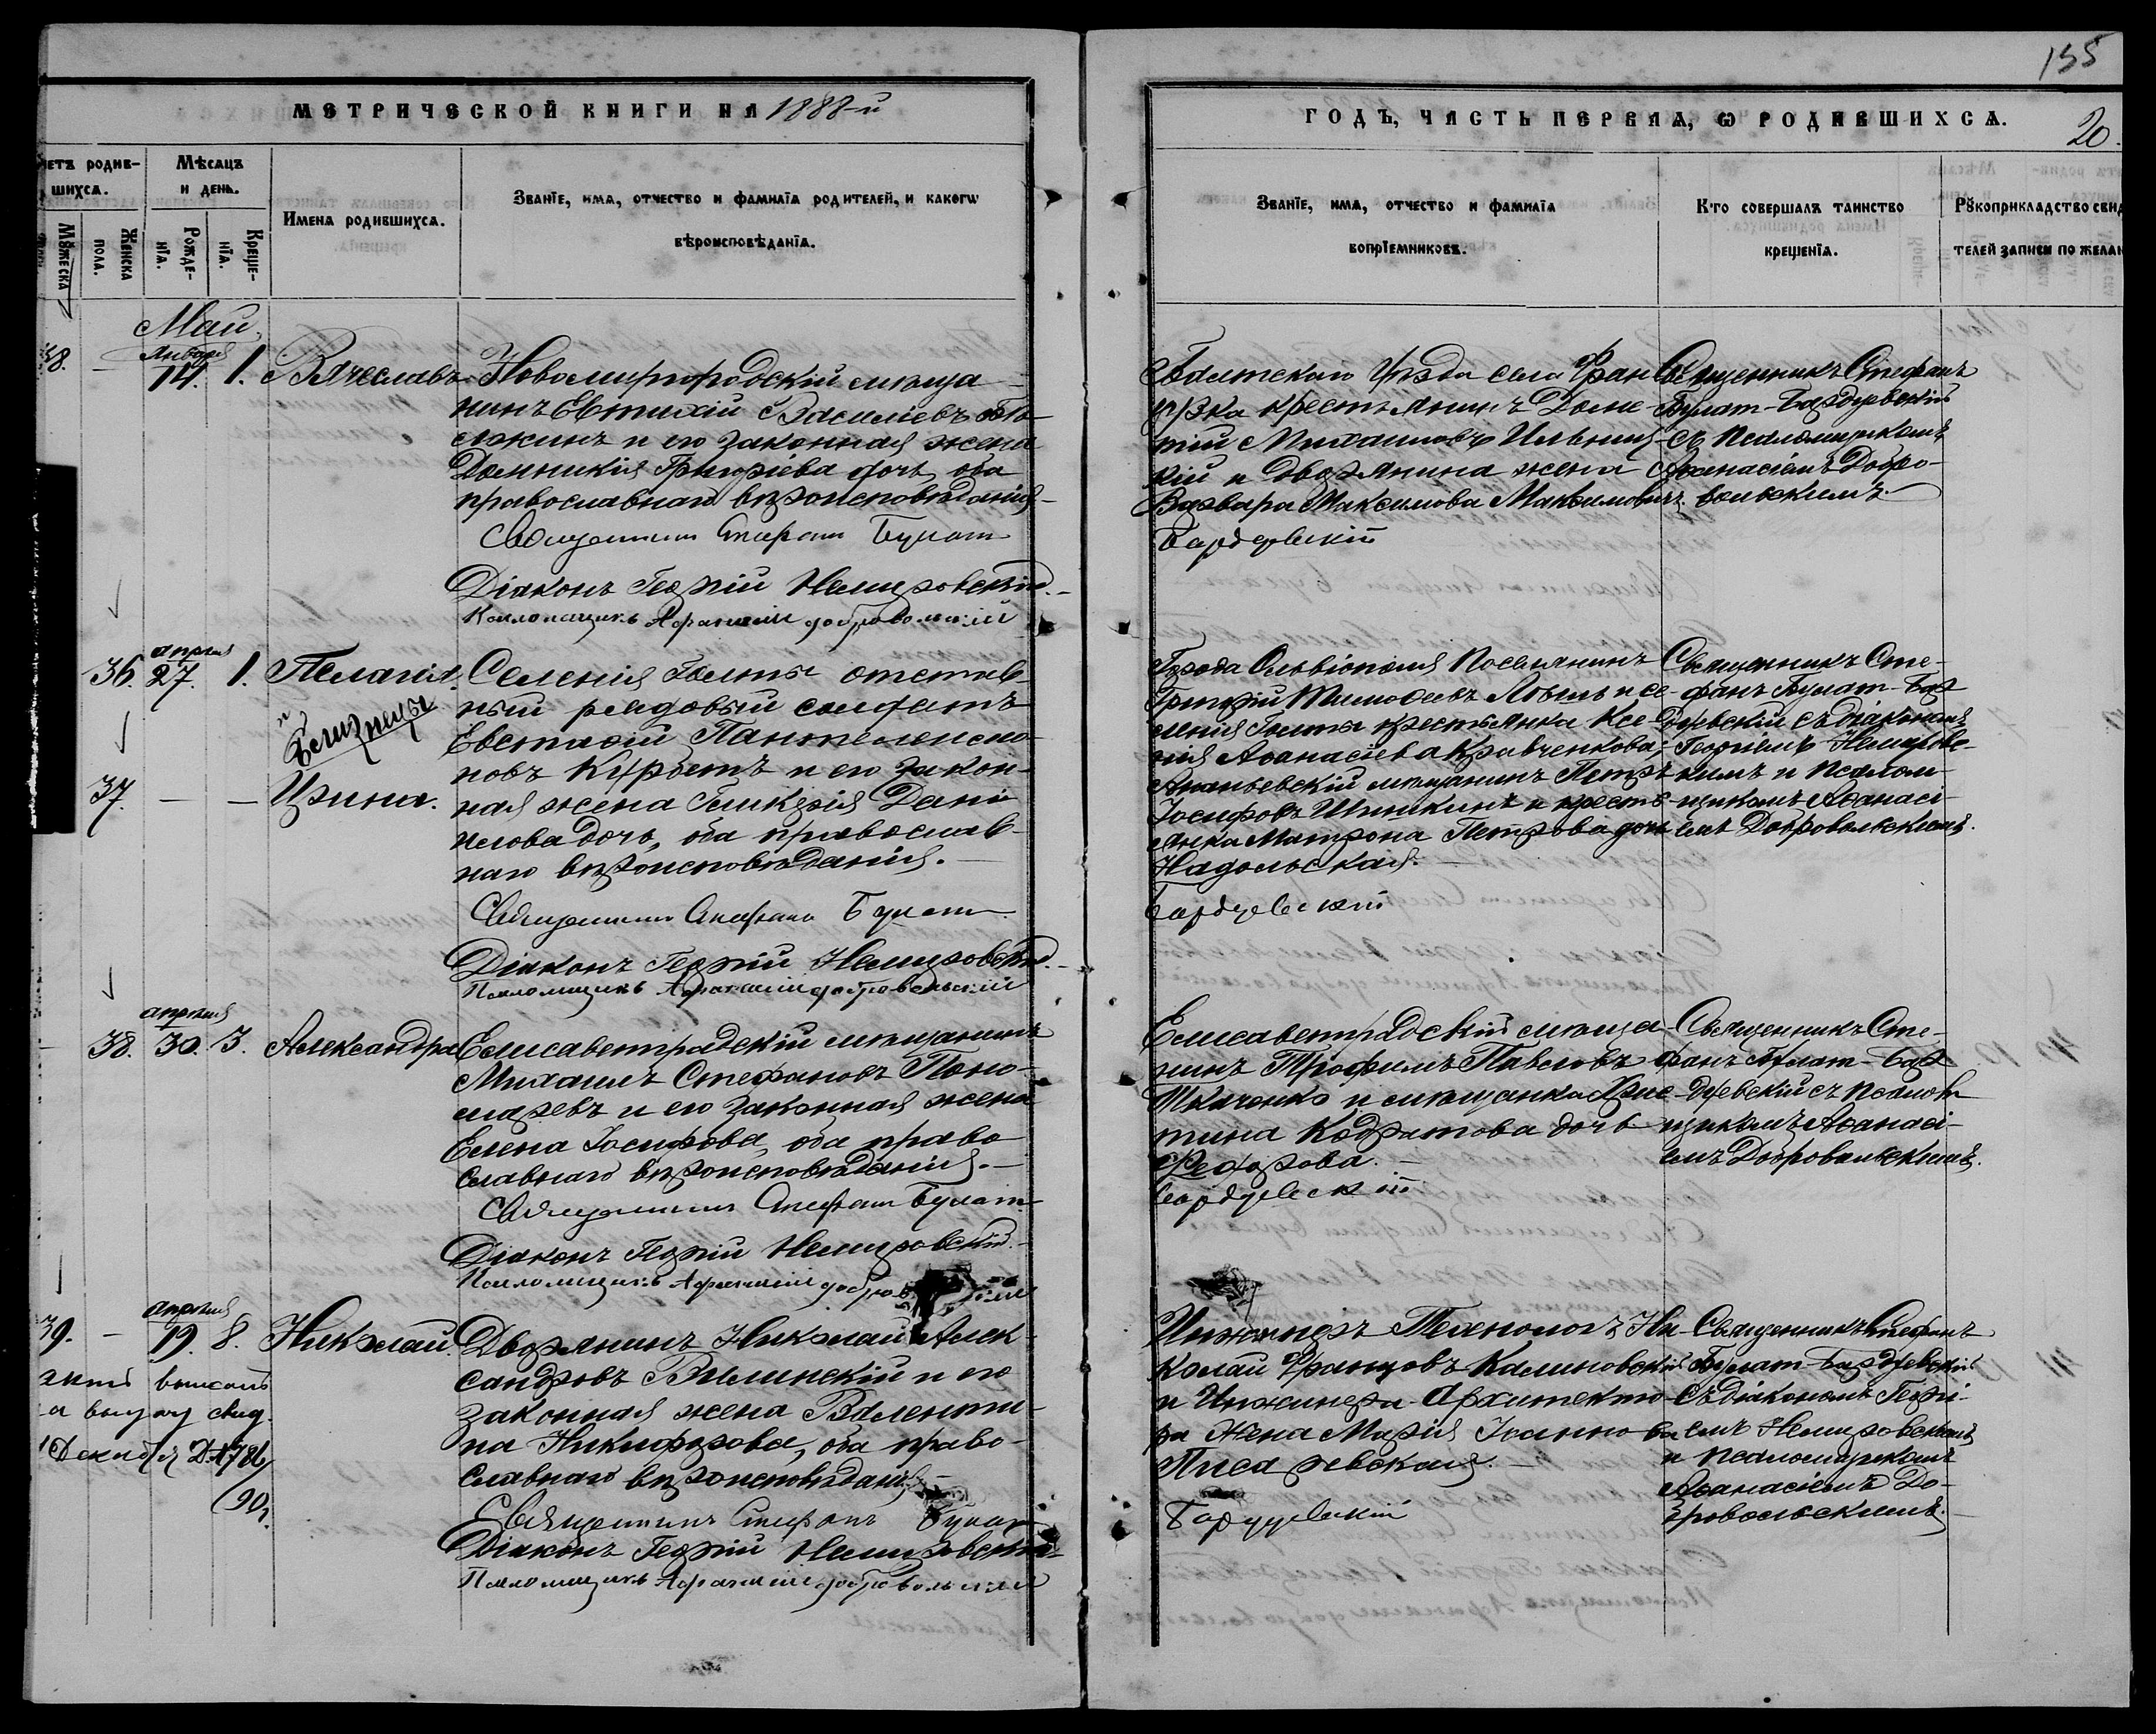 155
МЕТРИЧЕСКОЙ КНИГИ НА 1888-й
ГОДЪ, ЧАСТЬ ПЕРВАѦ, Ѡ РОДИВШИХСѦ.
20.
етъ родив-
шихсѧ.
Мѣсѧцъ
и день.
Мꙋжеска
Женска
пола.
Рожде-
нїѧ.
Креще-
нїѧ.
Имена родившихсѧ.
Званїе, имѧ, отчество и фамилїѧ родителей, и какогѡ
вѣроисповѣданїѧ.
Званїе, имѧ, отчество и фамилїѧ
вопрїемниковъ.
Кто совершалъ таинство
крещенїѧ.
Рꙋкоприкладство свид
телей записи по желан
Май.
38. — Января 14. 1. Вячеславъ
Новомиргородскій мѣща-
нинъ Евтихій Василіевъ
и его законная жена
Домникія Григоріева дочь, оба
православнаго вѣроисповѣданія
Священникъ Стефанъ Булат
Діаконъ Георгій Немировскій.
Псаломщикъ Афанасій Добровольскій
Балтскаго Уѣзда села
крестьянинъ Доме-
тій Михаиловъ
кій и Дворянина жена
Варвара Максимова Максимовичъ.
Бардуевскій
Священникъ Стефанъ
Булат-Бардуевскій
съ псаломщикомъ
Аѳанасіемъ Добро-
вольскимъ.
36. апрѣля 27. 1. Пелагія
и
Близнецы
37. — — Ирина.
Селенія Голты отстав-
ный рядовый солдатъ
Евстафій Пантелеимо-
новъ и его закон-
ная жена Гликерія Дані-
илова дочь, оба православ-
наго вѣроисповѣданія.
Священникъ Стефанъ Булат
Діаконъ Георгій Немировскій.
Псаломщикъ Афанасій Добровольскій
Города Ольвіополя Поселянинъ
Григорій Тимофеевъ и се-
ленія Голты крестьянка Ксе-
нія Аѳанасіева Кравченкова;
Ананьевскій мѣщанинъ Петръ
Іосифовъ Шишкинъ и кресть-
янка Матрона Петрова дочь
Надольская.
Бардуевскій
Священникъ Сте-
фанъ Булат-Бар
дуевскій съ Діакономъ
Георгіемъ Немировс-
кимъ и Псалом-
щикомъ Аѳанасі-
емъ Добровольскимъ.
38. апрѣля 30. 3. Александра
Елисаветградскій мѣщанинъ
Михаилъ Стефановъ Поно-
маревъ и его законная жена
Елена Іосифова, оба право
славнаго вѣроисповѣданія.
Священникъ Стефанъ Булат
Діаконъ Георгій Немировскій.
Псаломщикъ Афанасій
Елисаветградскій мѣща-
нинъ Трофимъ Павловъ
Ткаченко и мѣщанка Хрис-
тина Кодратова дочь
Федорова.
Бардуевскій
Священникъ Сте-
фанъ Булат-Бар
дуевскій съ Псалом
щикомъ Аѳанасі-
емъ Добровольскимъ.
39. — апрѣля 19. 8. Николай.
выписанъ
выдачу свид.
Декабря
90.
Дворянинъ Николай Алек-
сандровъ Вилинскій и его
законная жена Валенти-
на Никифорова, оба право-
славнаго вѣроисповѣданія.
Священникъ Стефанъ Булат
Діаконъ Георгій Немировскій
Псаломщикъ Афанасій Добровольскій
Инженеръ Технологъ Ни-
колай Францовъ Калиновскій
и Инженера-Архитекто-
ра Жена Марія Іоаннова
Писаревская.
Бардуевскій
Священникъ Стефанъ
Булат-Бардуевскій
съ Діакономъ Георгі-
емъ Немировскимъ
и Псаломщикомъ
Аѳанасіемъ До-
бровольскимъ.